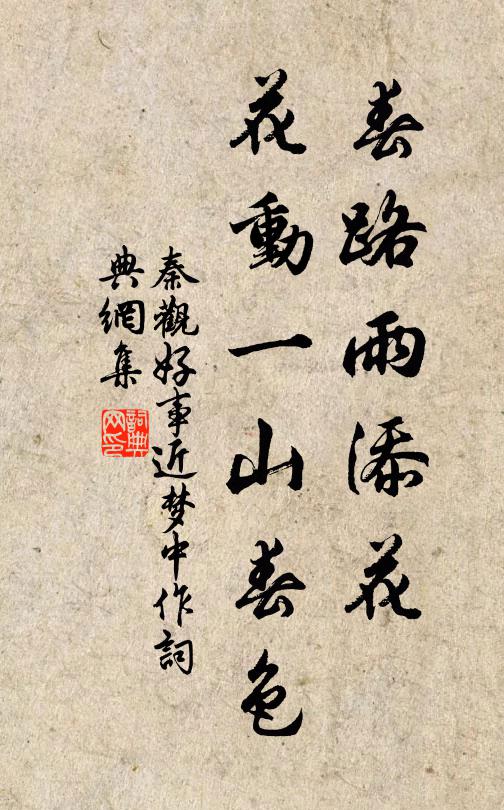 春路雨添花
花動一山春色
秦觀好事近梦中作詞
典網集
詞典网印